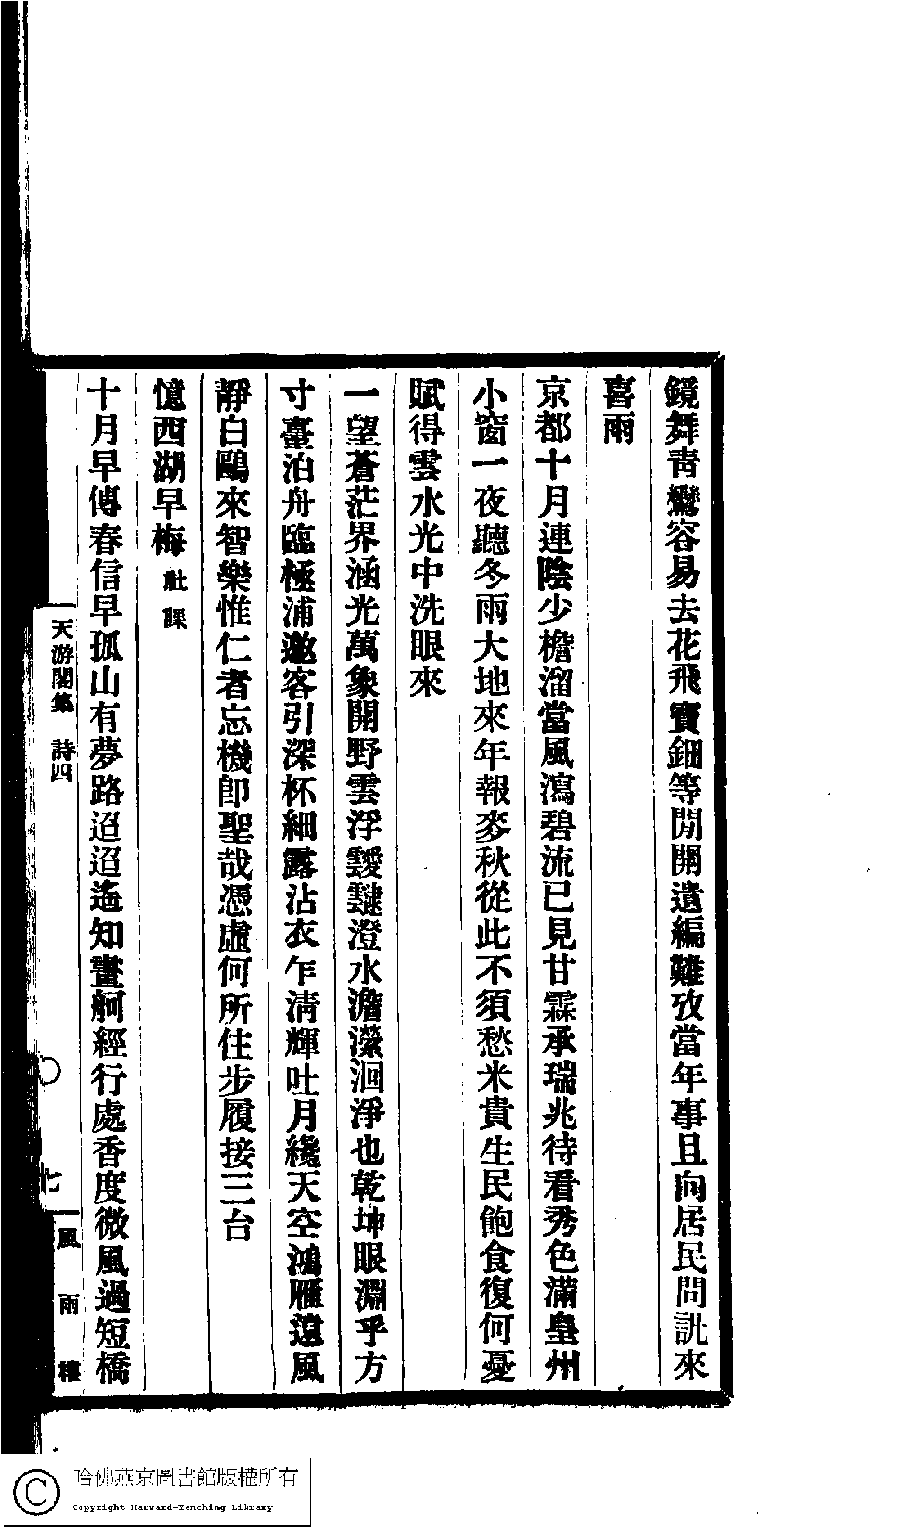 鏡舞靑鸞容易去花飛寶鈿等閒開遺編難攷當年事且向居民問訛來
喜雨
京都十月連陰少檐溜當風瀉碧流已見甘霖承瑞兆待看秀色滿皇州
小窗一夜聽冬雨大地來年報麥秋從此不須愁米貴生民飽食復何憂
賦得雲水光中洗眼來
一望蒼茫界涵光萬象開野雲浮靉靆澄水澹瀠洄淨也乾坤眼淵乎方
寸臺泊舟臨極浦邀客引深杯細露沾衣乍淸輝吐月纔天空鴻雁遠風
靜白鷗來智樂惟仁者忘機卽聖哉憑虛何所住步履接三台
憶西湖早梅 社課
十月早傳春信早孤山有夢路迢迢遙知畫舸經行處香度微風過短橋
天游閣集 詩四
七
風雨樓
哈佛燕京圖書館版權所有
Copyright Harvard-Yenching Library